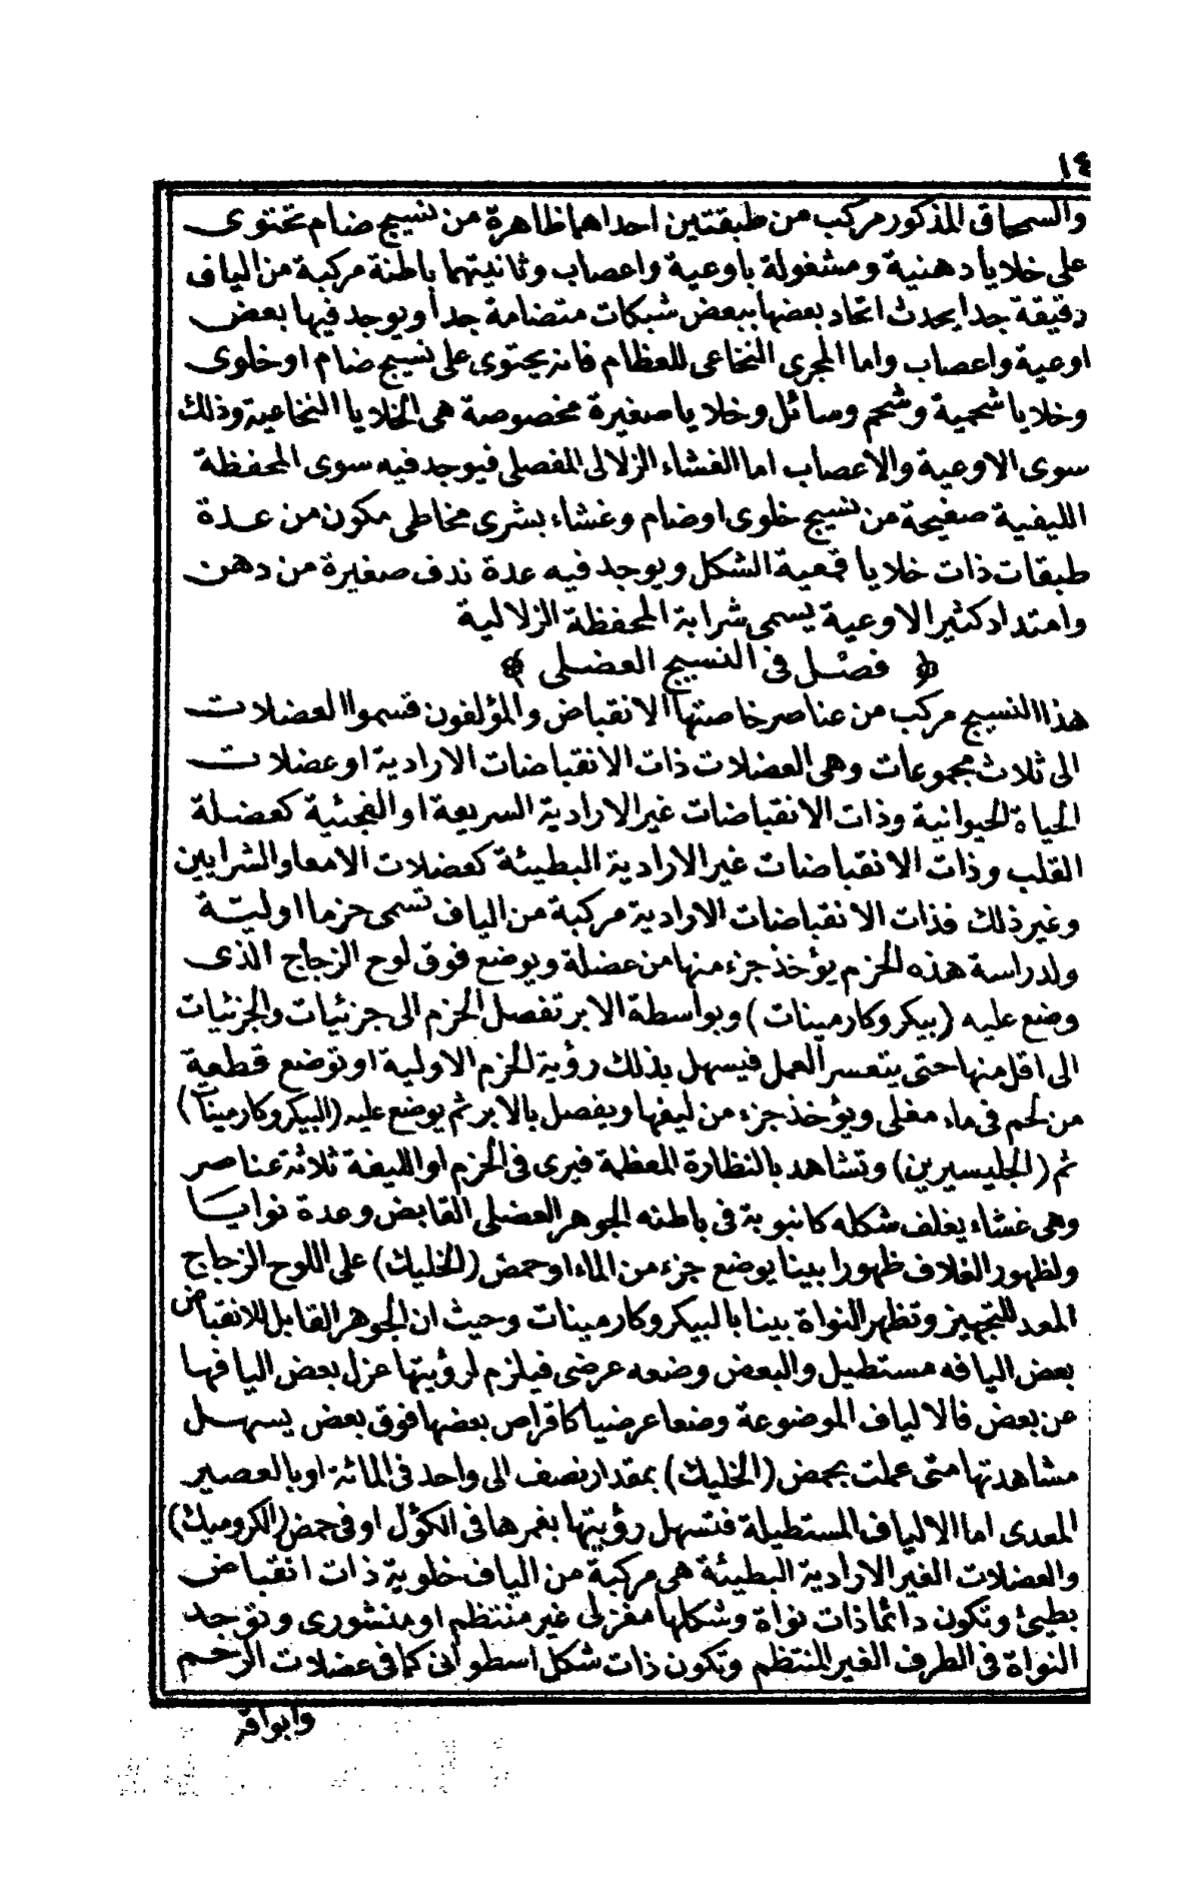 ١٤
والسمحاق المذكور مركب من طبقتين احداهما ظاهرة من نسيج ضام تحتوى
على خلايا دهنية ومشغولة باوعية واعصاب وثانيتهما باطنة مركبة من الياف
دقيقة جدا يحدث اتحاد بعضها ببعض شبكات متضامة جدا ويوجد فيها بعض
اوعية واعصاب واما المجرى النخاعى للعظام فانه يحتوى على نسيج ضام اوخلوى
وخلايا شحمية وشحم وسائل وخلايا صغيرة مخصوصة هى الخلايا النخاعية وذلك
سوى الاوعية والاعصاب اما الغشاء الزلالى المفصلى فيوجد فيه سوى المحفظة
الليفية صفيحة من نسيج خلوى اوضام وغشاء بشرى مخاطى مكون من عدة
طبقات ذات خلايا قمعية الشكل ويوجد فيه عدة ندف صغيرة من دهن
وامتداد كثير الاوعية يسمى شرابة المحفظة الزلالية
﴿ فصل فى النسيج العضلى ﴾
هذا النسيج مركب من عناصر خاصتها الانقباض والمؤلفون قسموا العضلات
الى ثلاث مجموعات وهى العضلات ذات الانقباضات الارادية اوعضلات
الحياة الحيوانية وذات الانقباضات غير الارادية السريعة او الفجئية كعضلة
القلب وذات الانقباضات غير الارادية البطيئة كعضلات الامعا والشرايين
وغير ذلك فذات الانقباضات الارادية مركبة من الياف تسمى حزما اولية
ولدراسة هذه الحزم يؤخذ جزء منها من عضلة ويوضع فوق لوح الزجاج الذى
وضع عليه (بيكروكارمينات) وبواسطة الابر تفصل الحزم الى جزئيات والجزئيات
الى اقل منها حتى يتعسر العمل فيسهل بذلك رؤية الحزم الاولية او توضع قطعة
من لحم فى ماء مغلى ويؤخذ جزء من ليفها ويفصل بالابر ثم يوضع عليه (البيكروكارمينات)
ثم (الجليسيرين) وتشاهد بالنظارة المعظمة فيرى فى الحزم او الليفة ثلاثة عناصر
وهى غشاء يغلف شكله كانبوبة فى باطنه الجوهر العضلى القابض وعدة نوايا
ولظهور الغلاف ظهورا بينا يوضع جزء من الماء اوحمض (الخليك) على اللوح الزجاج
المعد للتجهيز وتظهر النواة بينا بالبيكروكارمينات وحيث ان الجوهر القابل للانقباض
بعض اليافه مستطيل والبعض وضعه عرضى فيلزم لرؤيتها عزل بعض اليافها
عن بعض فالالياف الموضوعة وضعا عرضيا كاقراص بعضها فوق بعض يسهل
مشاهدتها متى عملت بحمض (الخليك) بمقدار نصف الى واحد فى المائة اوبالعصير
المعدى اما الالياف المستطيلة فتسهل رؤيتها بغمرها فى الكؤل اوفى حمض (الكروميك)
والعضلات الغير الارادية البطيئة هى مركبة من الياف خلوية ذات انقباض
بطيئ وتكون دائما ذات نواة وشكلها مغزلى غير منتظم اومنشورى وتوجد
النواة فى الطرف الغير المنتظم وتكون ذات شكل اسطوانى كما فى عضلات الرحم